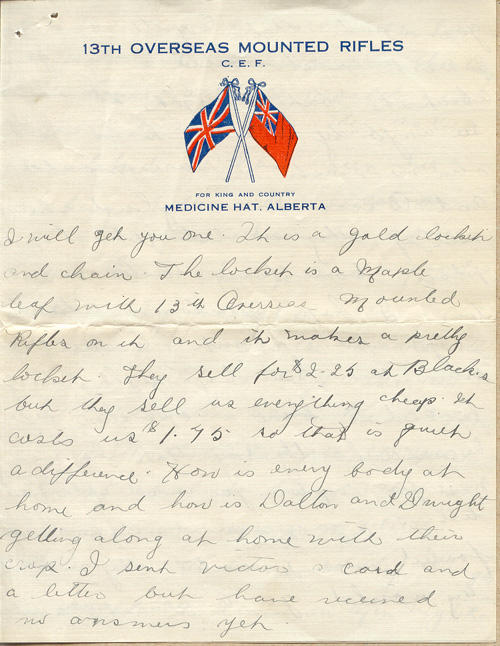 13TH OVERSEAS MOUNTED RIFLES
C. E. F.
FOR KING AND COUNTRY
MEDICINE HAT, ALBERTA
I will get you one. It is a gold locket
and chain. The locket is a Maple
leaf with 13th Overseas Mounted
Rifles on it and it makes a pretty
locket. They sell for $2.25 at Black's
but they sell us everything cheap. It
costs us $1.75 so that is quiet
a difference. How is every body at
home and how is Dalton and Dwight
getting along at home with their
crop. I sent Victor a card and
a letter but have received
no answers yet.